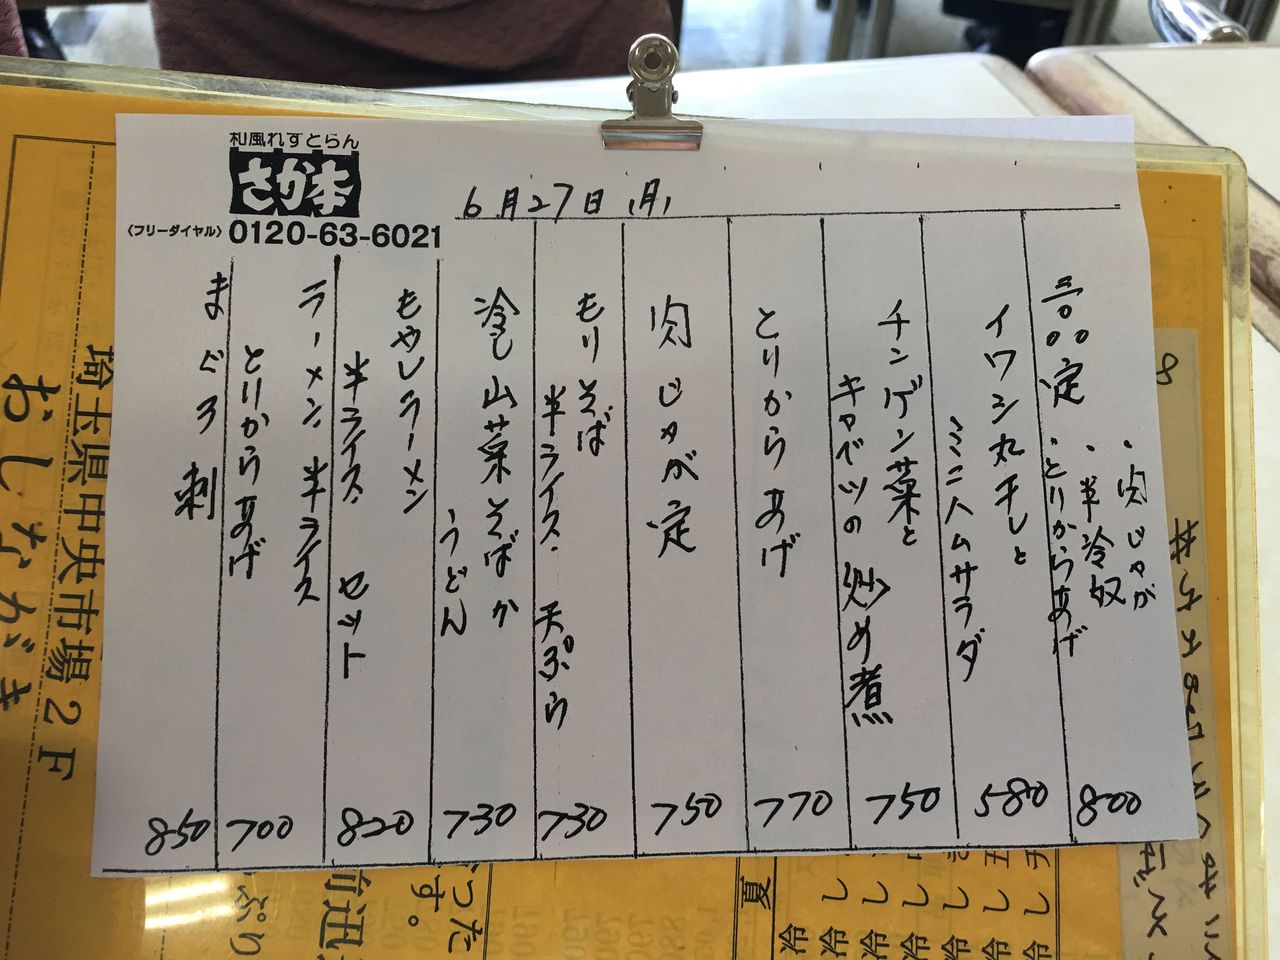 和風れすとらん
さか本
〈フリーダイヤル〉0120-63-6021
6月27日(月)
三品定
・肉じゃが
・半冷奴
・とりからあげ
800
イワシ丸干しと
ミニハムサラダ
580
チンゲン菜と
キャベツの炒め煮
750
とりからあげ
770
肉じゃが定
750
もりそば
半ライス・天ぷら
730
冷し山菜そばか
うどん
730
もやしラーメン
半ライス・セット
820
ラーメン半ライス
とりからあげ
700
まぐろ刺
850
埼玉県中央市場2F
おしながき
った
す。
夏
冷し
冷し
冷し
冷し
冷し
冷し